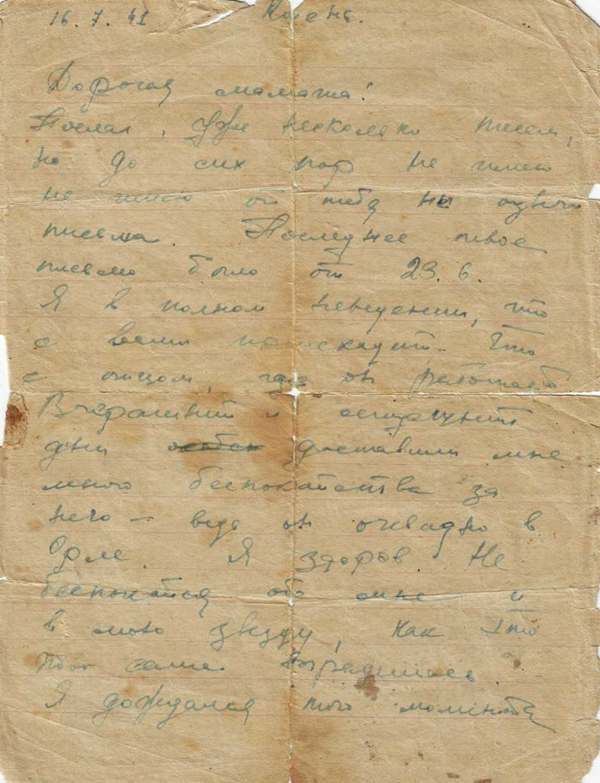 16.7.41 Киев.
Дорогая мамаша!
Послал, уже несколько писем,
но до сих пор не имею
не имею от тебя ни одного
письма. Последнее твое
письмо было от 23.6.
Я в полном неведении, что
с вами происходит. Что
с отцом, где он работает
Вчерашний и
дни доставили мне
много беспокойства за
него – ведь он очевидно в
Орле. Я здоров. Не
беспокойся обо мне и
в мою звезду, как это
сама выразилась
Я дождался того момента